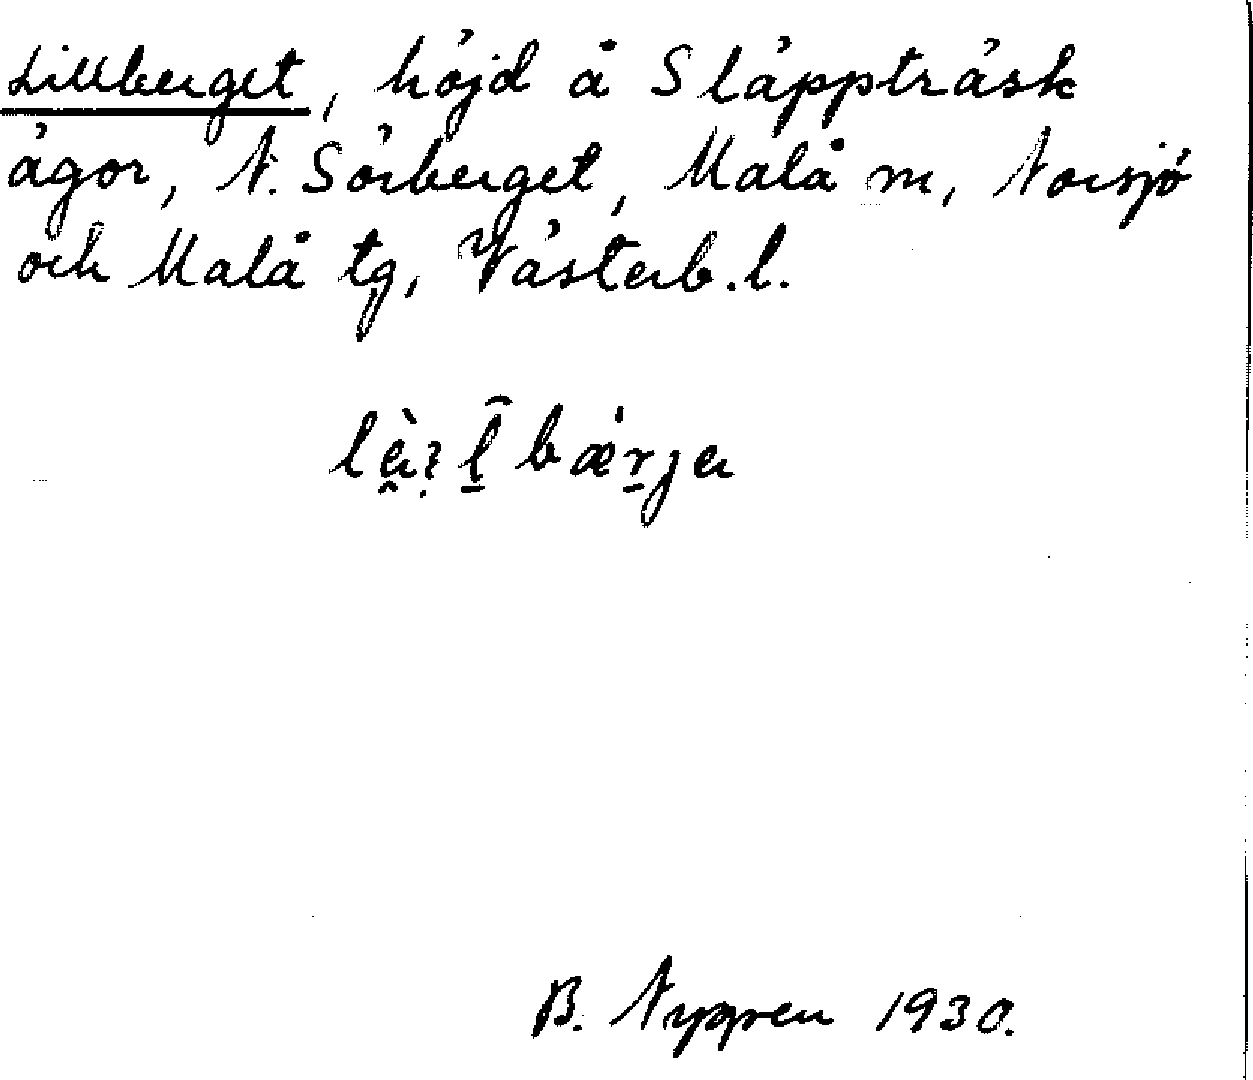 Lillberget, höjd å Släppträsk
ägor, N. Sörberget, Malå m, Norsjö
och Malå tg, Västerb. l.
B. Nygren 1930.